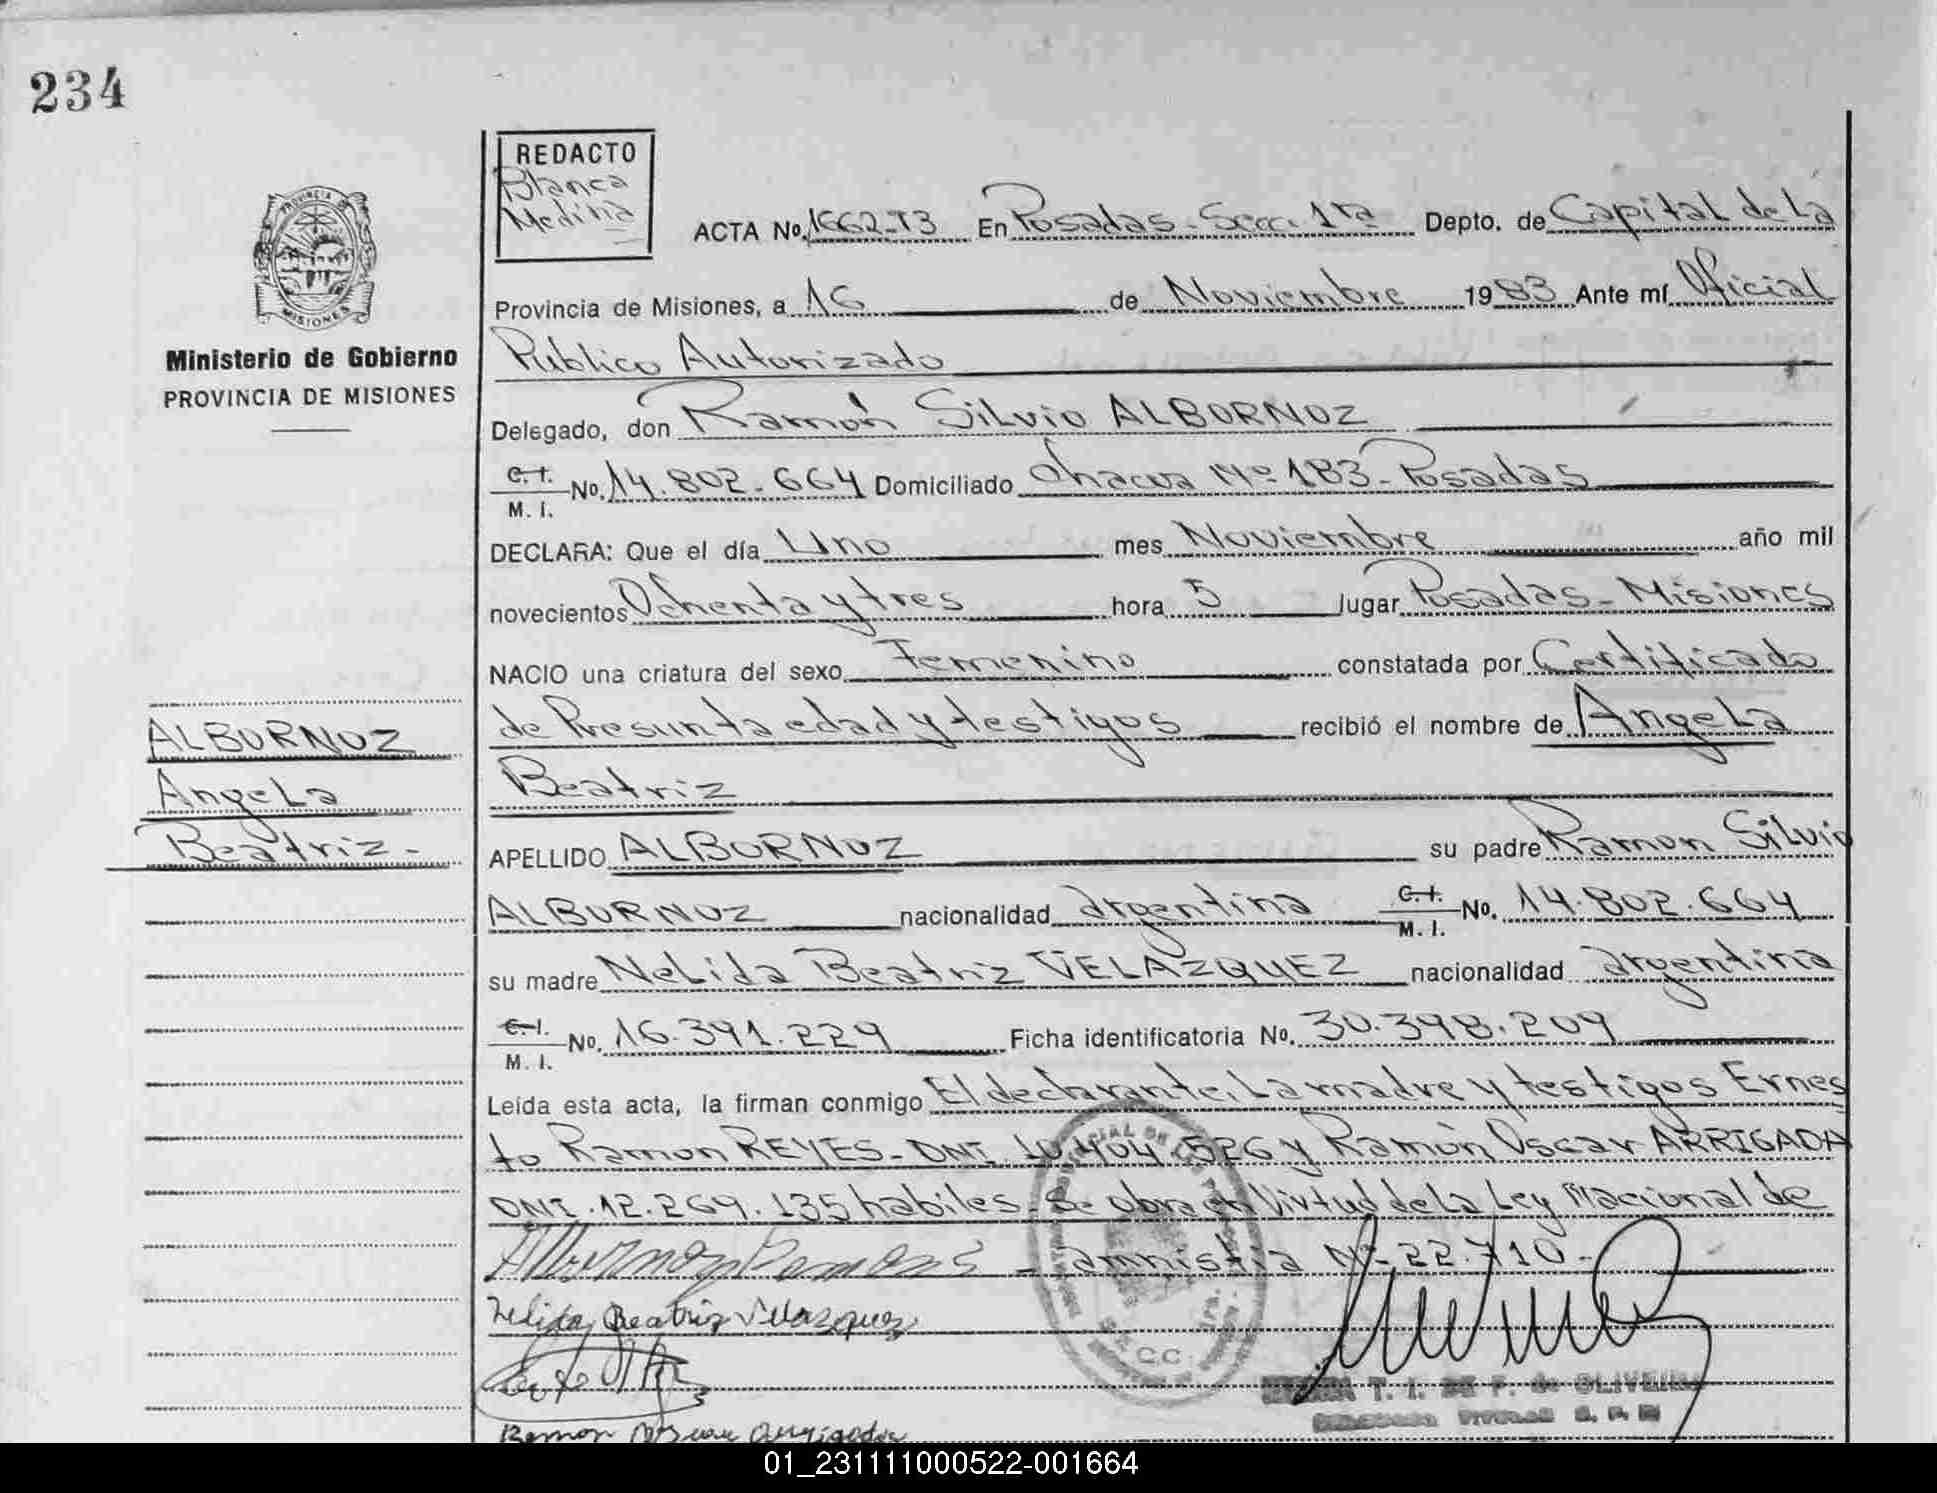 234
REDACTO
Blanca
Medina
PROVINCIA DE
MISIONES
Ministerio de Gobierno
PROVINCIA DE MISIONES
ACTA No. 1662-T3 En Posadas - Secc. 1ra Depto. de Capital de La
Provincia de Misiones, a 16 de Noviembre 1983 Ante mí Oficial
Publico Autorizado
Delegado, don Ramón Silvio ALBORNOZ
C. I.
M. I. No. 14.802.664 Domiciliado Chacra Nº 183 - Posadas
DECLARA: Que el día Uno mes Noviembre año mil
novecientos Ochenta y tres hora 5 lugar Posadas - Misiones
NACIO una criatura del sexo Femenino constatada por Certificado
de Presunta edad y testigos recibió el nombre de Angela
Beatriz
ALBORNOZ
Angela
Beatriz.-
APELLIDO ALBORNOZ su padre Ramon Silvio
ALBORNOZ nacionalidad argentina C. I.
M. I. No. 14.802.664
su madre Nelida Beatriz VELAZQUEZ nacionalidad argentina
C. I.
M. I. No. 16.391.229 Ficha identificatoria No. 30.398.209
Leída esta acta, la firman conmigo El declarante, La madre y testigos Ernes
to Ramon REYES - DNI. 10.404.526 y Ramón Oscar ARRIGADA
DNI. 12.269.135 habiles. Se obra en Virtud de La Ley Nacional de
Albornoz Ramon S - amnistia Nº 22.710 -
Nelida Beatriz Velazquez
C.C.
T. I. DE F. de OLIVEIRA
Ramon Oscar Arrigada
01_231111000522-001664